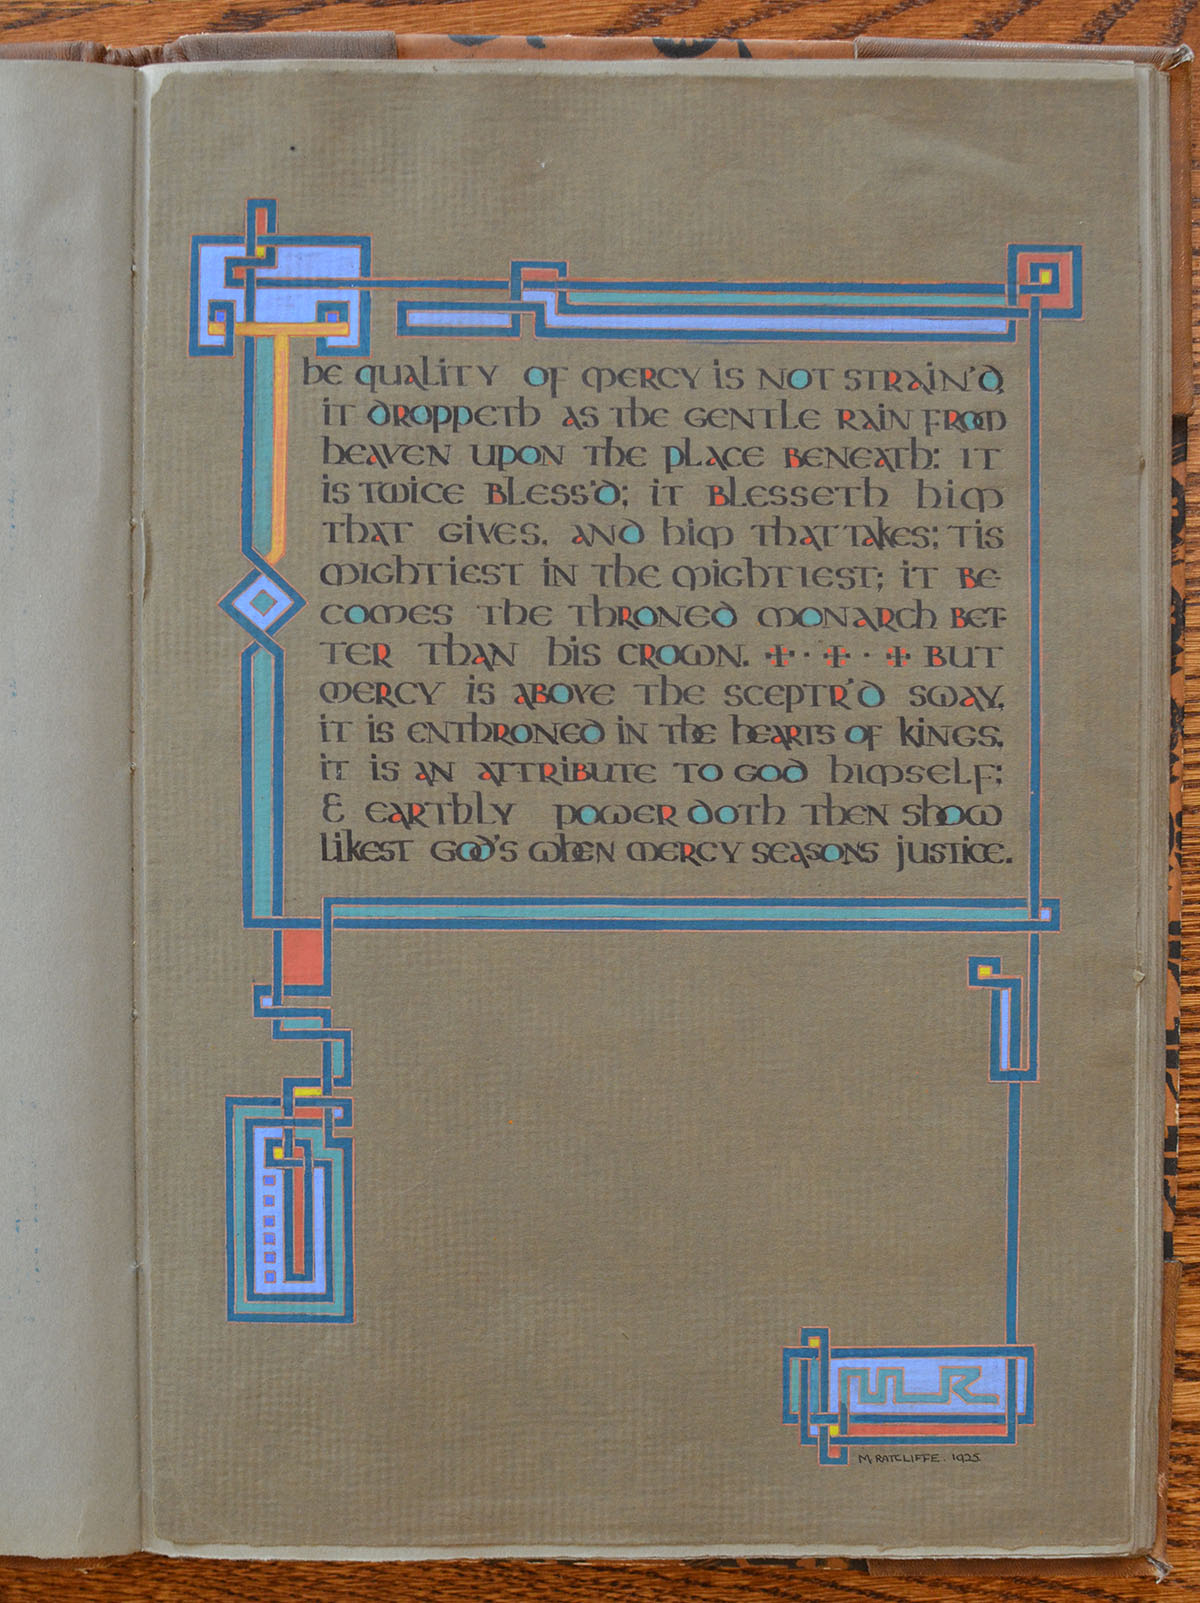 The quality of mercy is not strain'd,
it droppeth as the gentle rain from
heaven upon the place beneath: it
is twice bless'd; it blesseth him
that gives, and him that takes; 'tis
mightiest in the mightiest; it be-
comes the throned monarch bet-
ter than his crown. + · + · + But
mercy is above the sceptr'd sway,
it is enthroned in the hearts of kings,
it is an attribute to God himself;
& earthly power doth then show
likest God's when mercy seasons justice.
MR
M. RATCLIFFE. 1925